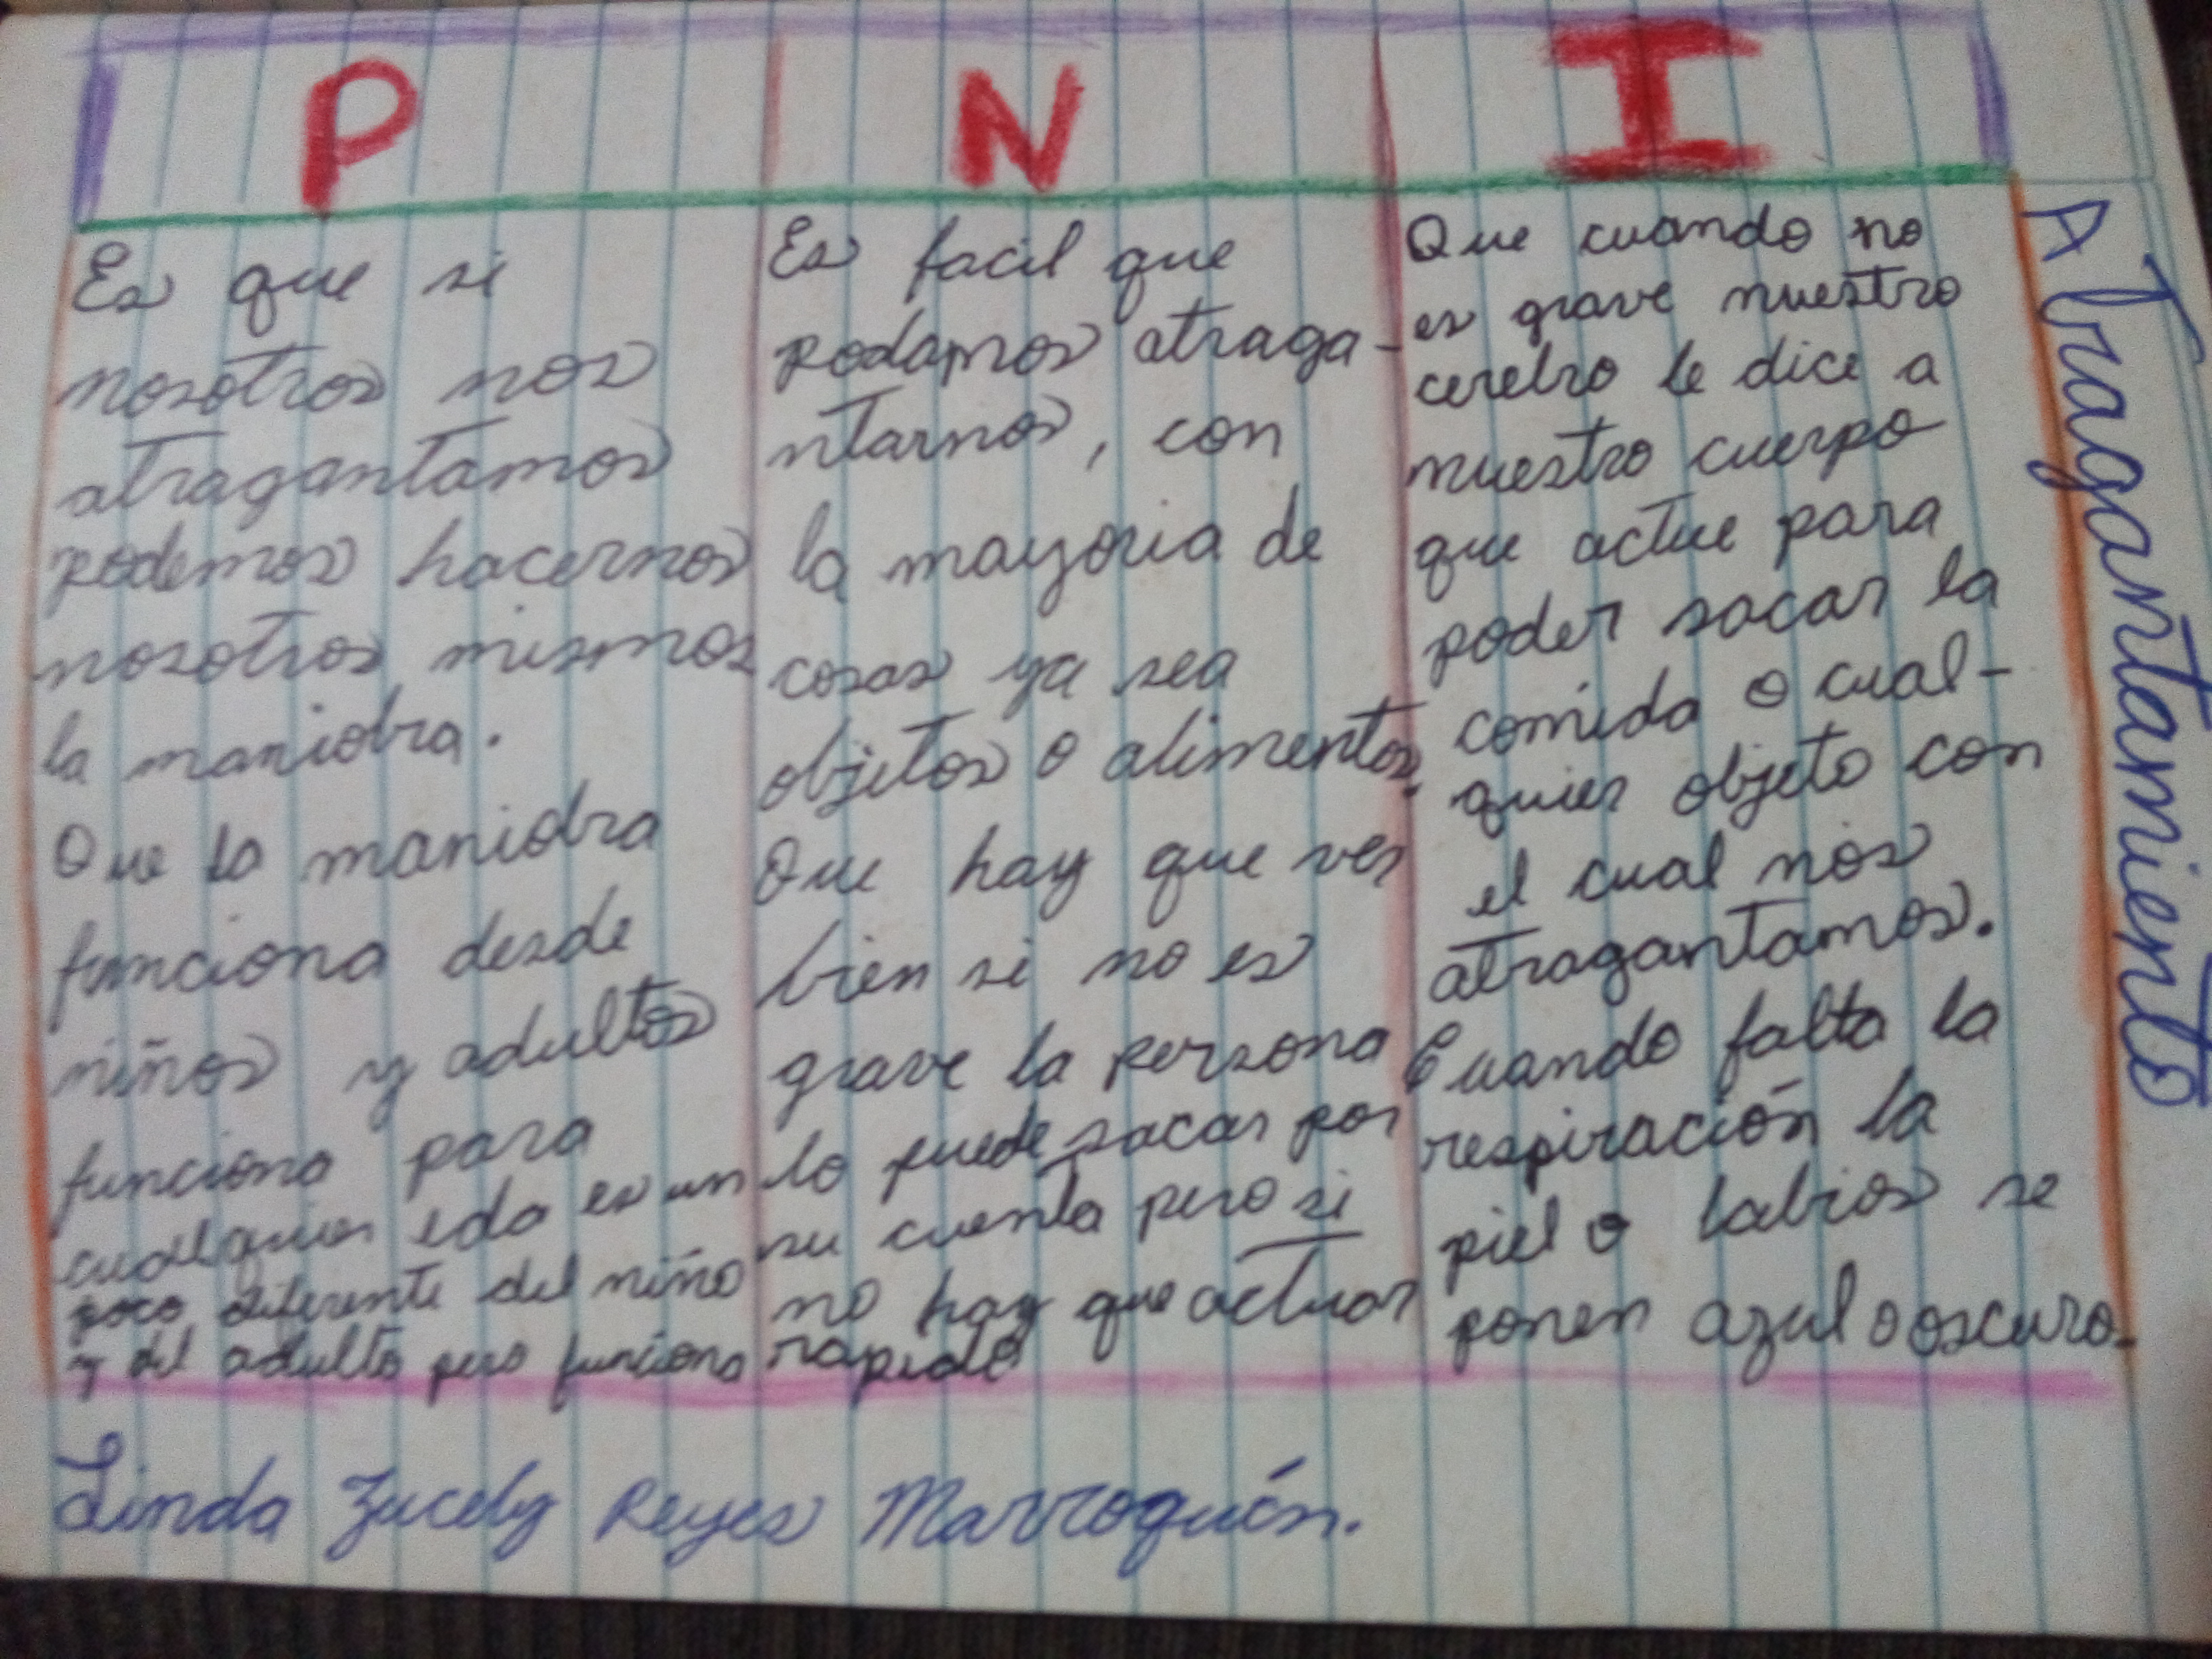 P
N
I
Es que si
nosotros nos
atragantamos
podemos hacernos
nosotros mismos
la maniobra.
Que la maniobra
funciona desde
niños y adultos
funciona para
cualquier eda es un
poco diferente del niño
y del adulto pero funciona
Es facil que
podamos atraga-
ntarnos, con
la mayoria de
cosas ya sea
objetos o alimentos.
Que hay que ver
bien si no es
grave la persona
lo puede sacar por
su cuenta pero si
no hay que actuar
rapido
Que cuando no
es grave nuestro
cerebro le dice a
nuestro cuerpo
que actue para
poder sacar la
comida o cual-
quier objeto con
el cual nos
atragantamos.
Cuando falta la
respiración la
piel o labios se
ponen azul o oscuro.
Atragantamiento
Linda Jucely Reyes Marroquín.